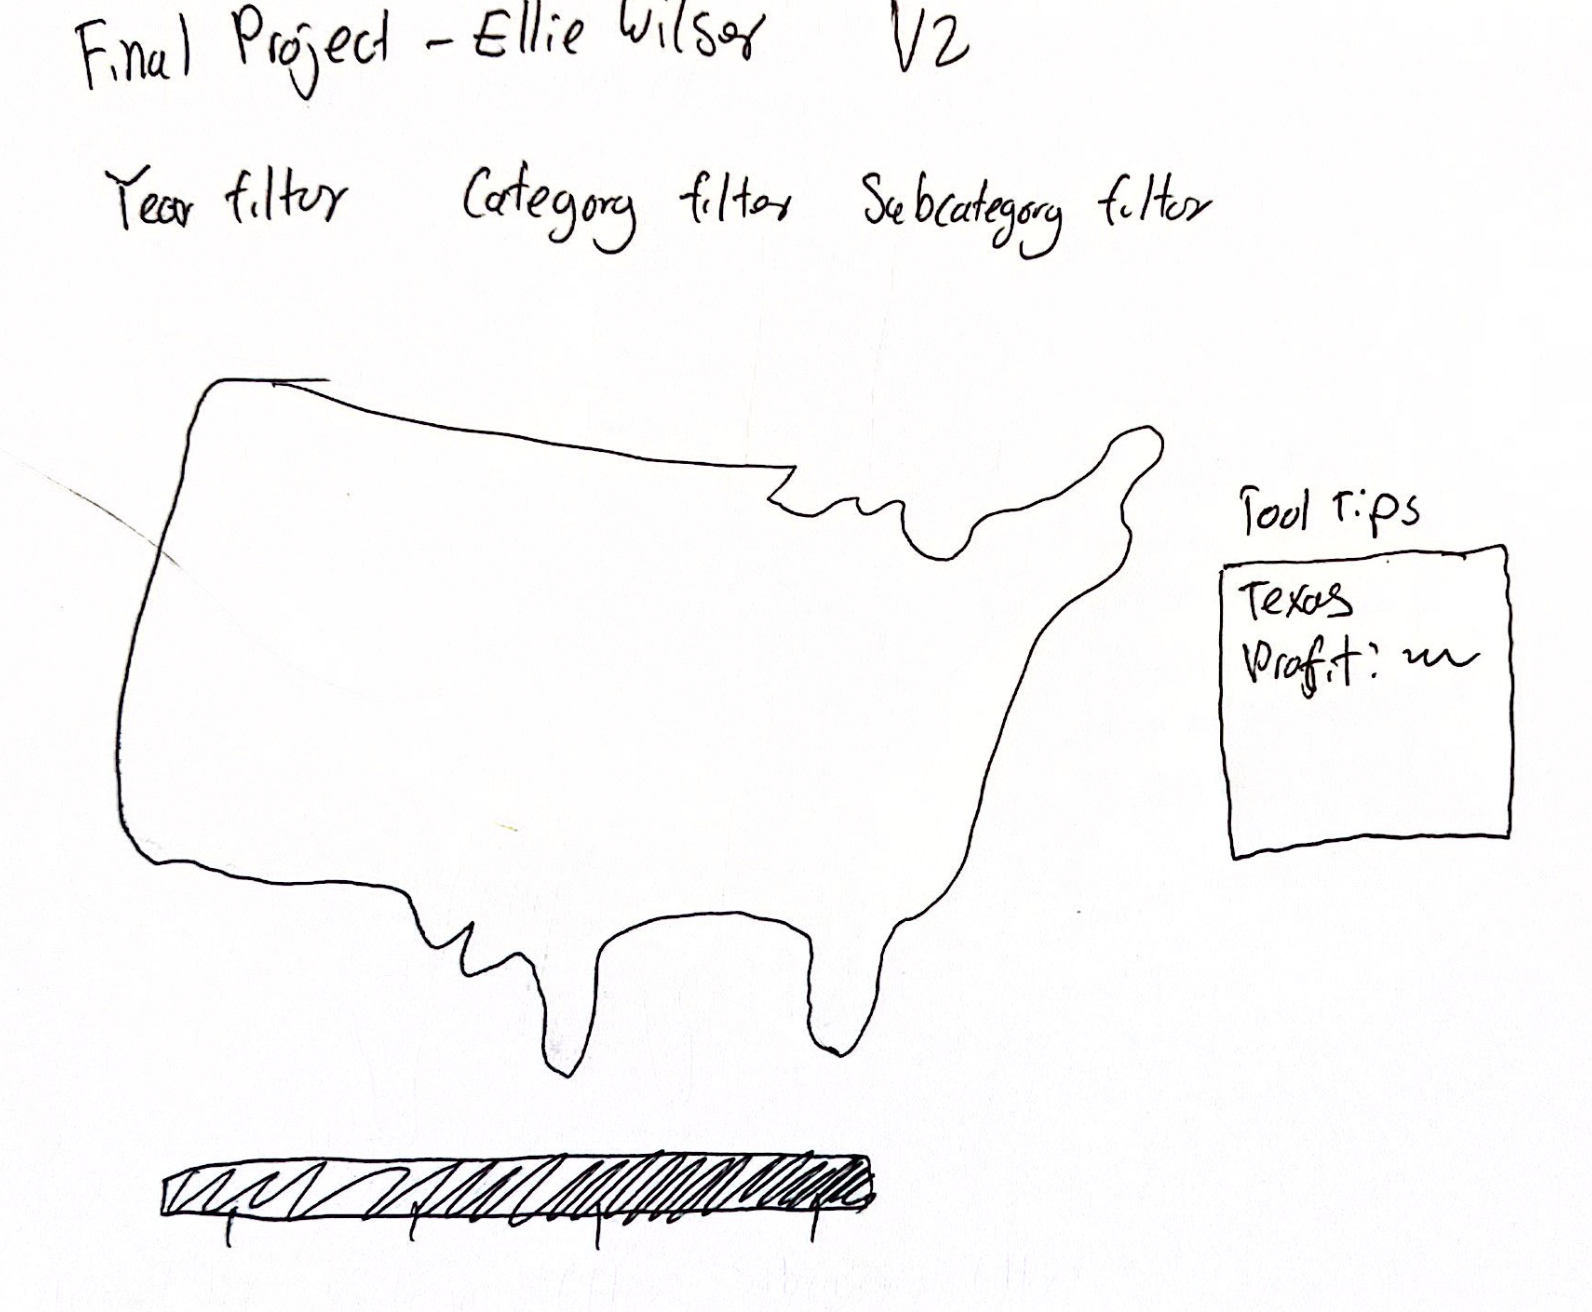 Final Project - Ellie Wilser V2
Year filter Category filter Subcategory filter
Tool Tips
Texas
Profit: